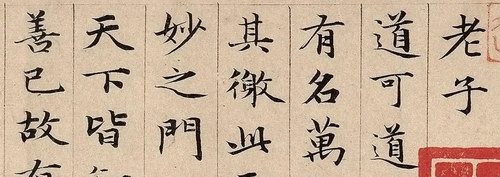 老子
道可道
有名萬
其徼此
妙之門
天下皆
善已故有